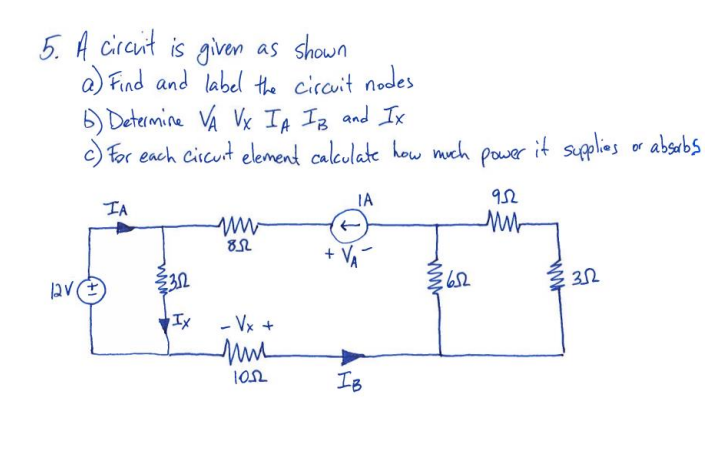 5. A circuit is given as shown
a) Find and label the circuit nodes
b) Determine VA Vx IA IB and Ix
c) For each circuit element calculate how much power it supplies or absorbs
IA
1A
9Ω
8Ω
+ VA -
12V
+
-
3Ω
6Ω
3Ω
Ix
- Vx +
10Ω
IB